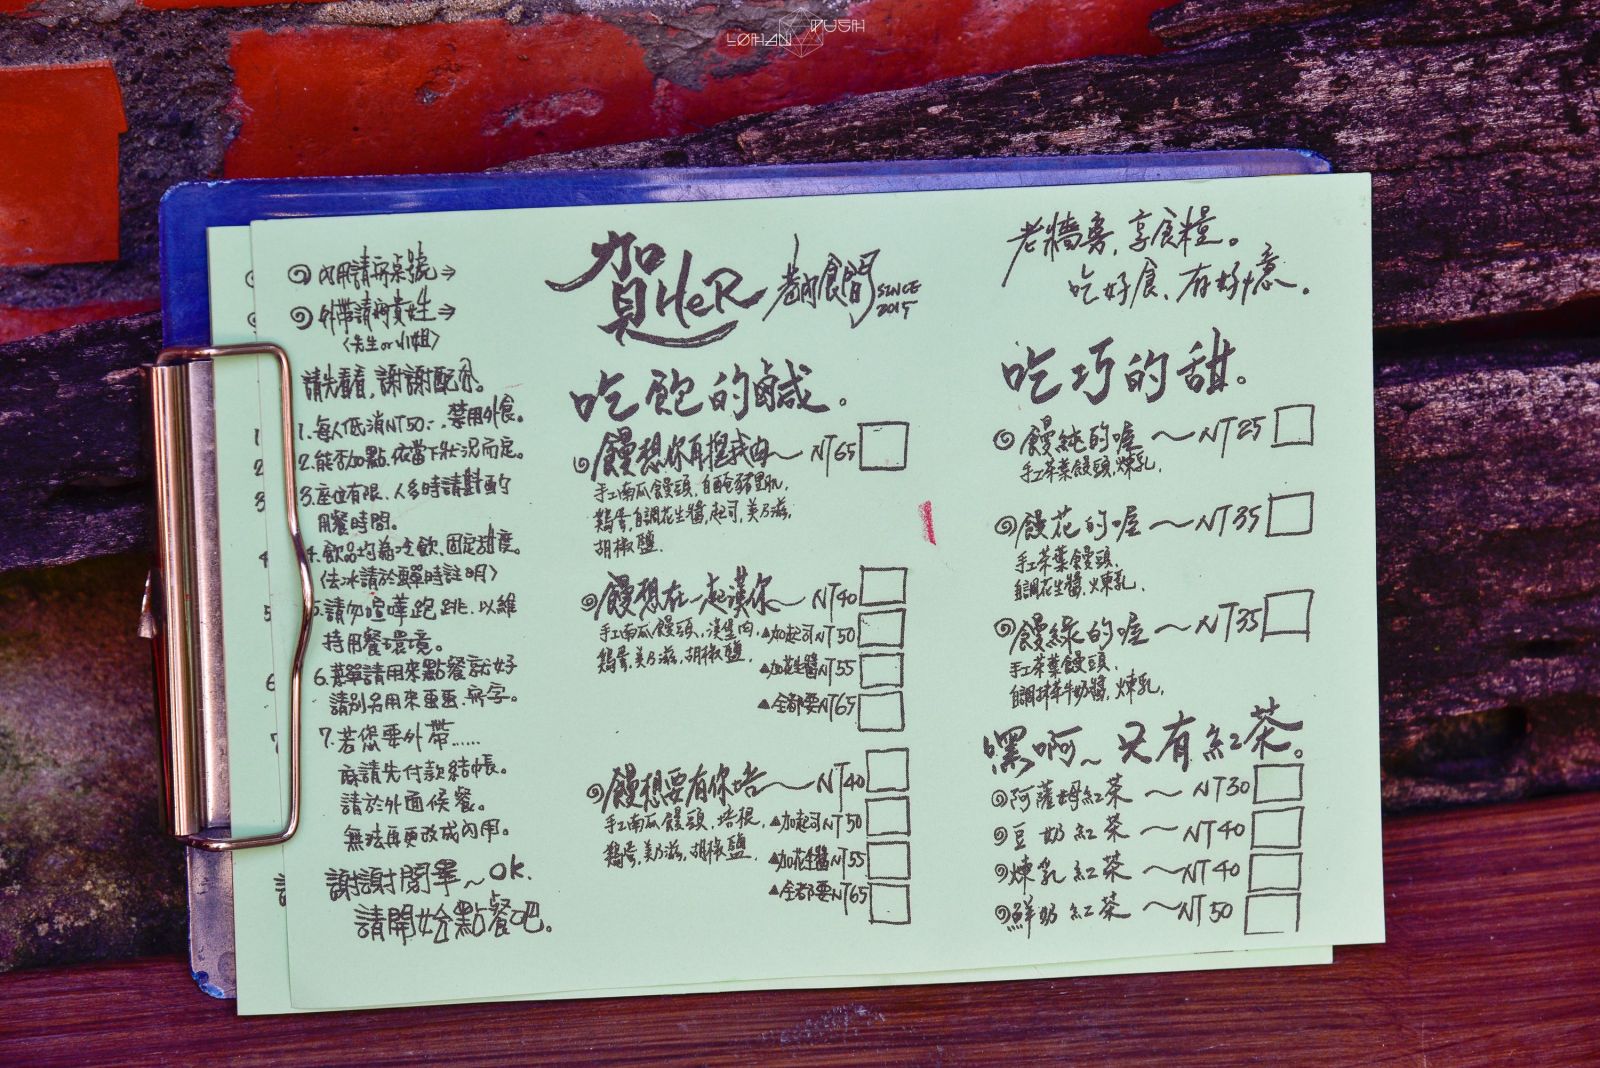 LOHAN PUSH
內用請寫桌號⇒
外帶請寫貴姓⇒
〈先生or小姐〉
請先看看,謝謝配合。
1.每人低消NT50.、禁用外食。
2.能否加點、依當下狀況而定。
3.座位有限、人多時請對面的
用餐時間。
4.飲品均為冷飲、固定甜度。
〈去冰請於畫單時註明〉
5.請勿喧嘩跑跳、以維
持用餐環境。
6.菜單請用來點餐就好
請別名用來畫畫、寫字。
7.若您要外帶……
麻請先付款結帳。
請於外面候餐。
無法再更改成內用。
謝謝閱畢~OK.
請開始點餐吧。
賀HeR 食間 SINCE
2015
吃飽的鹹。
饅想你再捏我肉~NT65
手工南瓜饅頭,自醃豬里肌,
鷄蛋,自調花生醬,起司,美乃滋,
胡椒鹽.
饅想在一起漢你~NT40
手工南瓜饅頭,漢堡肉, ▲加起司NT50
鷄蛋,美乃滋,胡椒鹽. ▲加花生醬NT55
▲全都要NT65
饅想要有你培~NT40
手工南瓜饅頭,培根, ▲加起司NT50
鷄蛋,美乃滋,胡椒鹽. ▲加花生醬NT55
▲全都要NT65
老牆旁,享食糧。
吃好食、有好憶.
吃巧的甜。
饅純的喔~NT25
手工茶葉饅頭,煉乳.
饅花的喔~NT35
手工茶葉饅頭.
自調花生醬,煉乳.
饅綠的喔~NT35
手工茶葉饅頭.
自調抹茶牛奶醬,煉乳.
嘿啊~只有紅茶。
阿薩姆紅茶~NT30
豆奶紅茶~NT40
煉乳紅茶~NT40
鮮奶紅茶~NT50